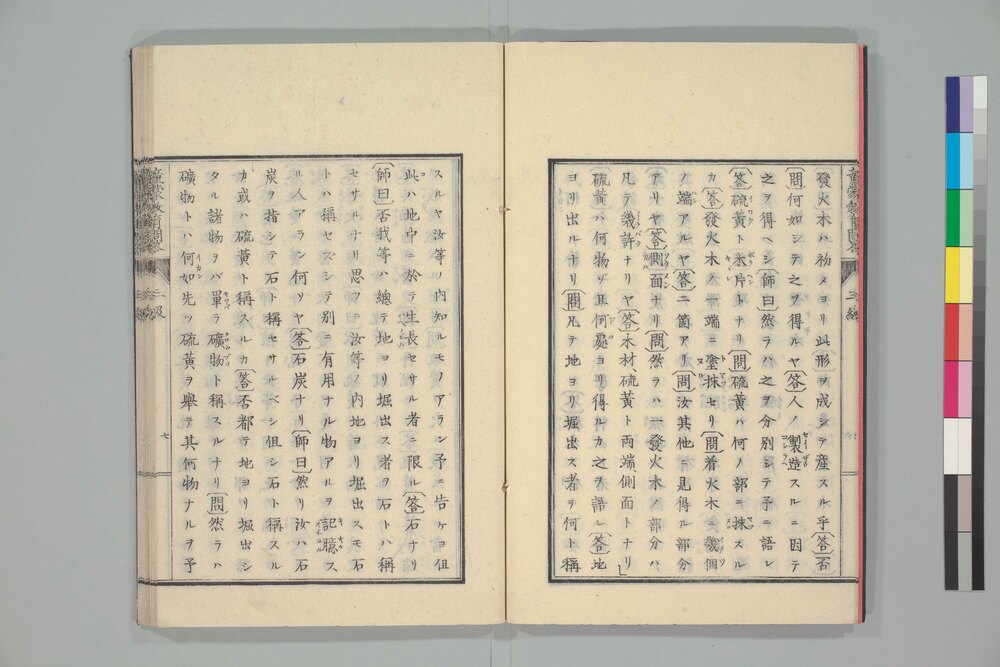 發火木ハ初メヨリ此形ヲ成シテ産スル乎〔答〕否
〔問〕何如シテ之ヲ得ルヤ〔答〕人ノ製造スルニ因テ
之ヲ得ベシ〔師曰〕然ラハ之ヲ分別シテ予ニ語レ
〔答〕硫黄ト木片トナリ〔問〕硫黄ハ何ノ部ニ抹スル
カ〔答〕發火木ノ一端ニ塗抹セリ〔問〕着火木ニ幾個
ノ端アルヤ〔答〕二箇アリ〔問〕汝其他ニ見得ル部分
アリヤ〔答〕側面ナリ〔問〕然ラハ發火木ノ部分ハ
凡テ幾許ナリヤ〔答〕木材、硫黄ト両端、側面トナリ」
硫黄ハ何物ゾ其何處ヨリ得ルカ之ヲ語レ〔答〕地
ヨリ出ルナリ〔問〕凡テ地ヨリ堀出ス者ヲ何ト稱
スルヤ汝等ノ内知ルモノアラン予ニ告ケヨ但
此ハ地中ニ於テ生長セサル者ニ限ル〔答〕石ナリ
〔師曰〕否我等ハ總テ地ヨリ堀出ス者ヲ石トハ稱
セサルナリ思フニ汝等ノ内地ヨリ堀出スモ石
トハ稱セズシテ別ニ有用ナル物アルヲ記臆ス
ル人アラン何ソヤ〔答〕石炭ナリ〔師曰〕然リ汝ハ石
炭ヲ指シテ石ト稱セサルベシ但シ石ト稱スル
カ或ハ硫黄ト稱スルカ〔答〕否都テ地ヨリ堀出シ
タル諸物ヲバ單ラ礦物ト稱スルナリ〔問〕然ラハ
礦物トハ何如先ツ硫黄ヲ舉テ其何物ナルヲ予
七